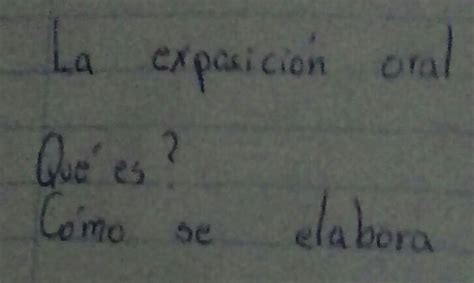 La exposición oral
Qué es?
Cómo se elabora